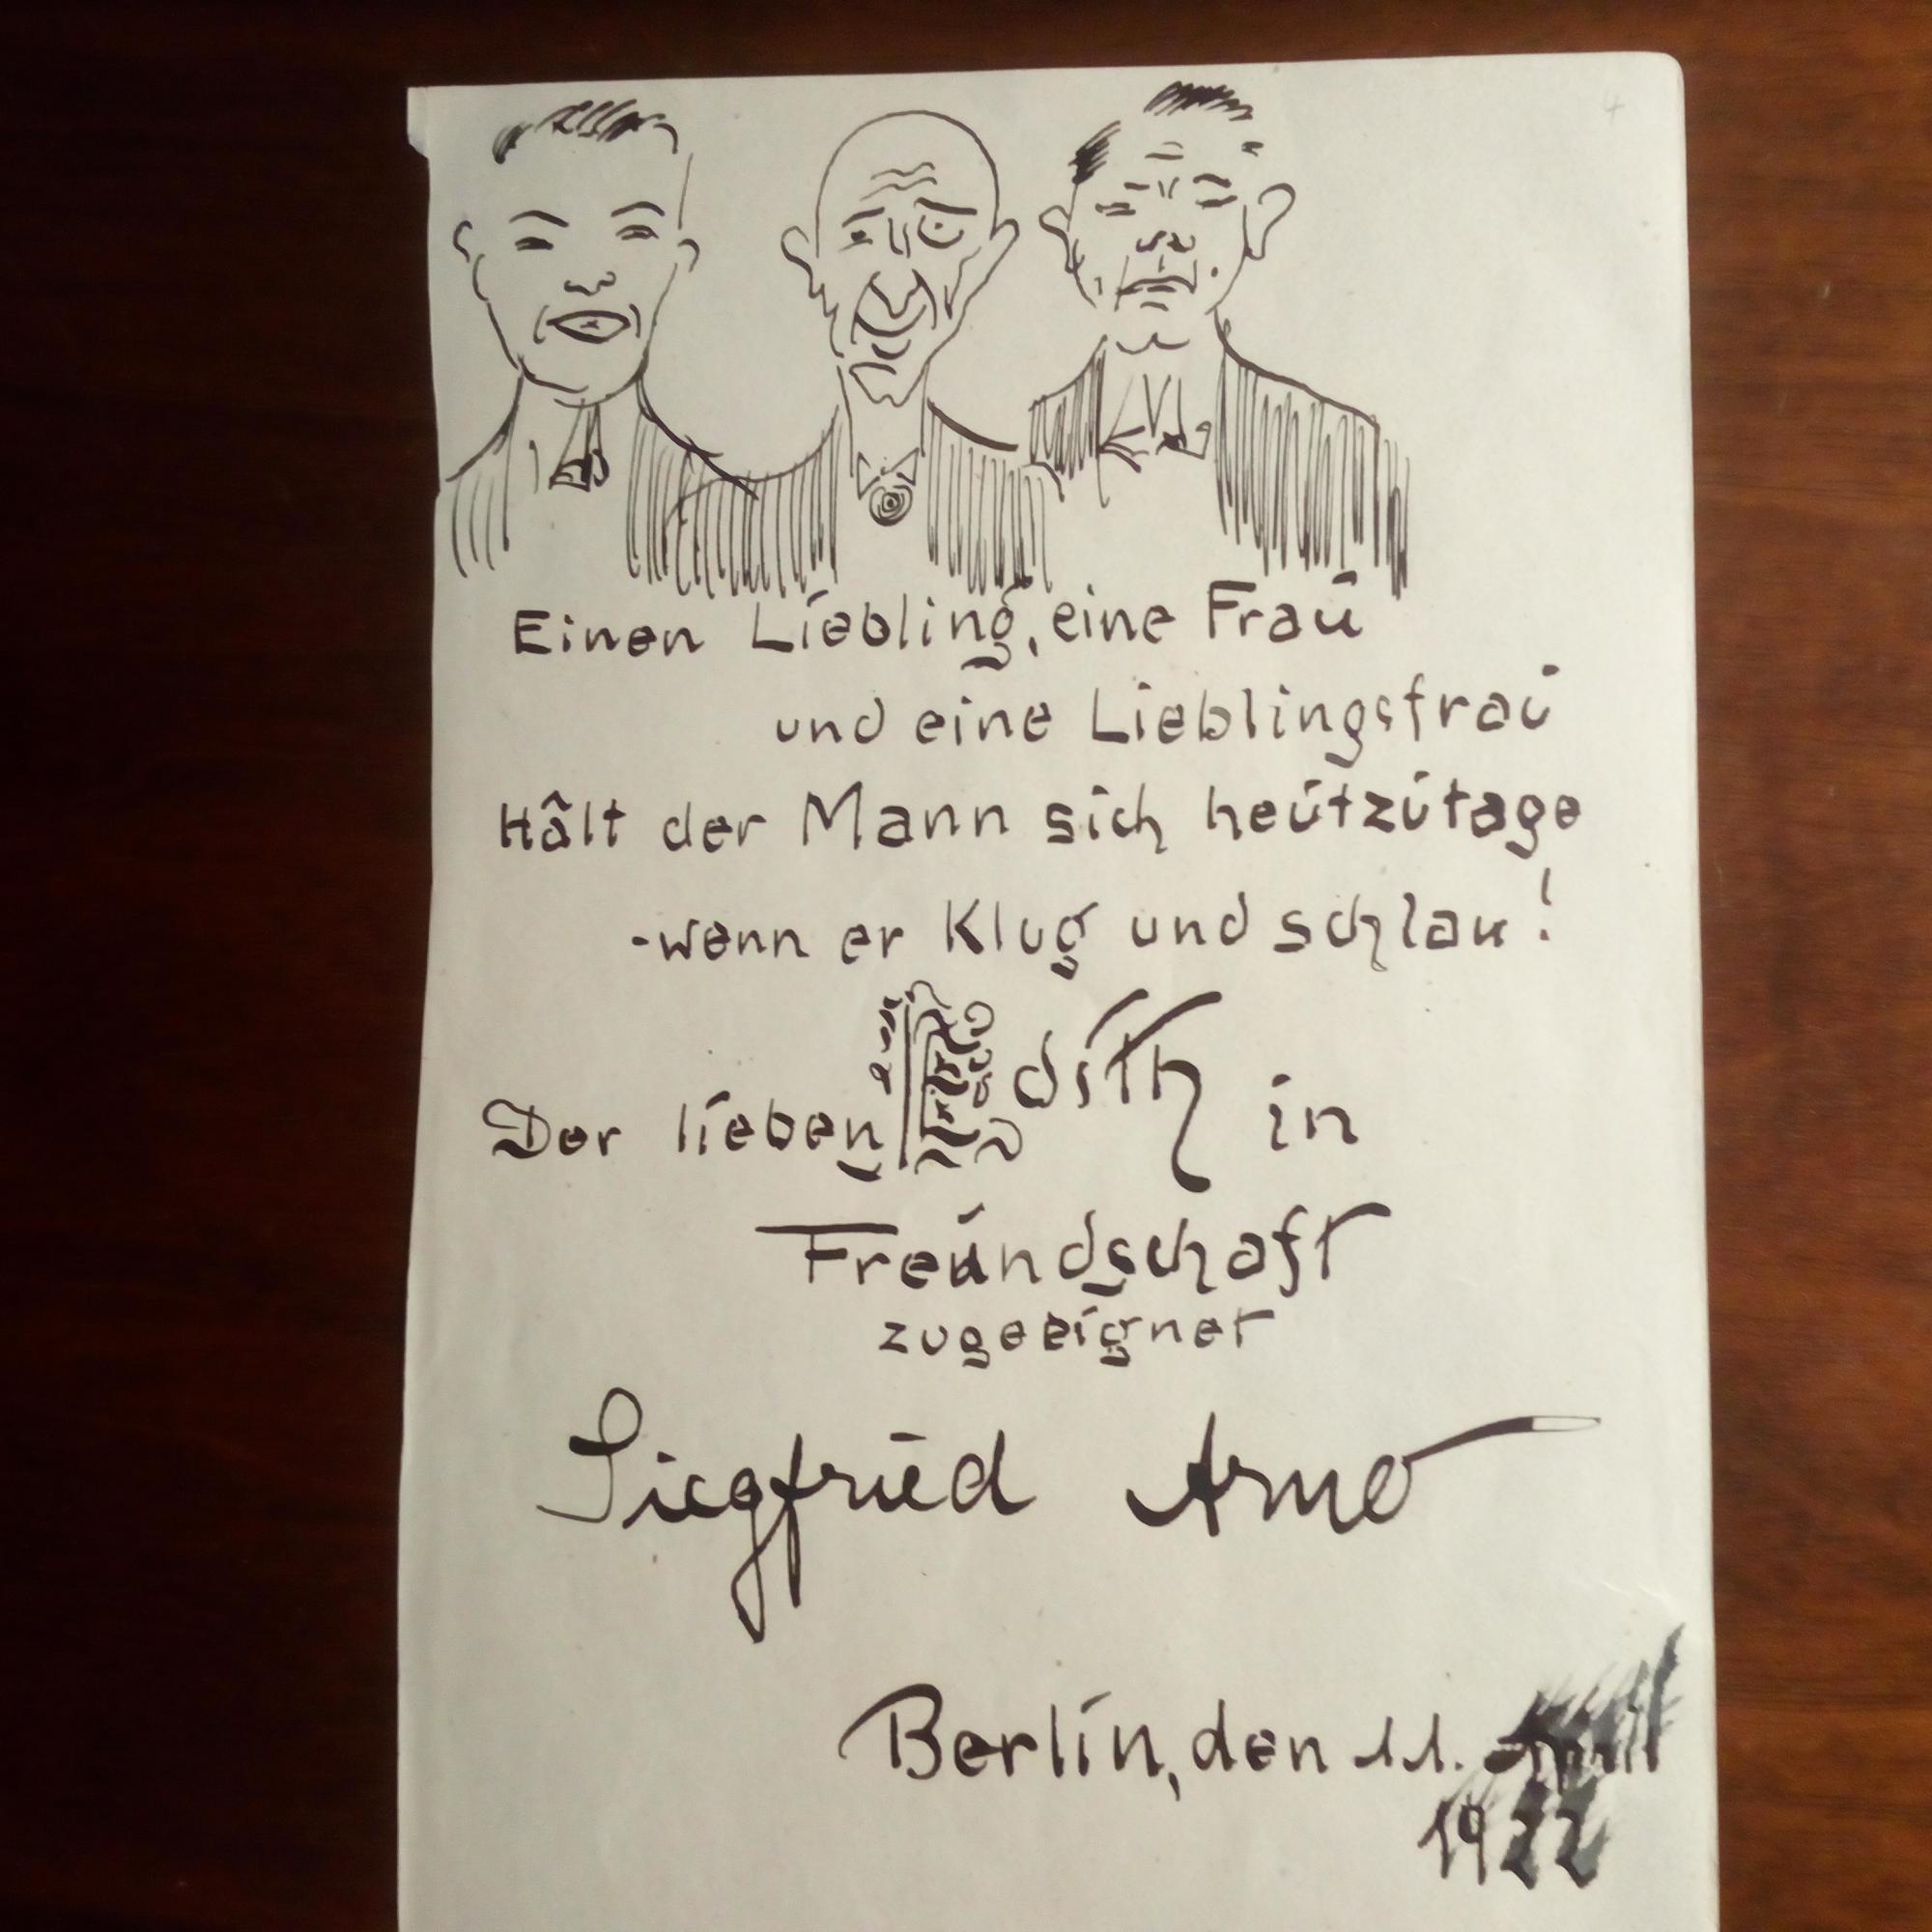 4
Einen Liebling, eine Frau
und eine Lieblingsfrau
Hält der Mann sich heutzutage
-wenn er Klug und schlau!
Der lieben Edith in
Freundschaft
zugeeignet
Siegfried Arno
Berlin, den 11. April
1922